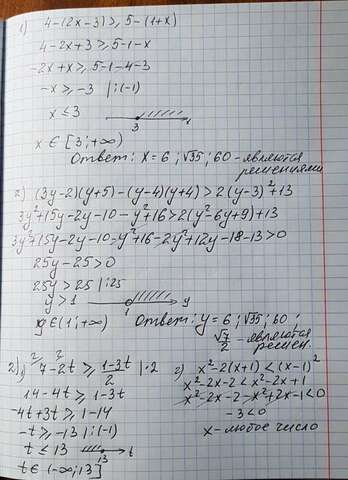 1) 4-(2x-3) ≥ 5-(1+x)
4-2x+3 ≥ 5-1-x
-2x+x ≥ 5-1-4-3
-x ≥ -3 |:(-1)
x ≤ 3
3
x ∈ [3;+∞)
Ответ: x = 6; √35; 60 - являются
решениями
2) (3y-2)(y+5)-(y-4)(y+4) > 2(y-3)²+13
3y²+15y-2y-10-y²+16 > 2(y²-6y+9)+13
3y²+15y-2y-10-y²+16-2y²+12y-18-13 > 0
25y-25 > 0
25y > 25 |:25
y > 1
1 y
y ∈ (1;+∞) Ответ: y = 6; √35; 60;
√7/2 - являются
решен.
2) 7-2t ≥ (1-3t)/2 |·2
14-4t ≥ 1-3t
-4t+3t ≥ 1-14
-t ≥ -13 |:(-1)
t ≤ 13
13 t
t ∈ (-∞;13]
г) x²-2(x+1) < (x-1)²
x²-2x-2 < x²-2x+1
x²-2x-2-x²+2x-1 < 0
-3 < 0
x - любое число